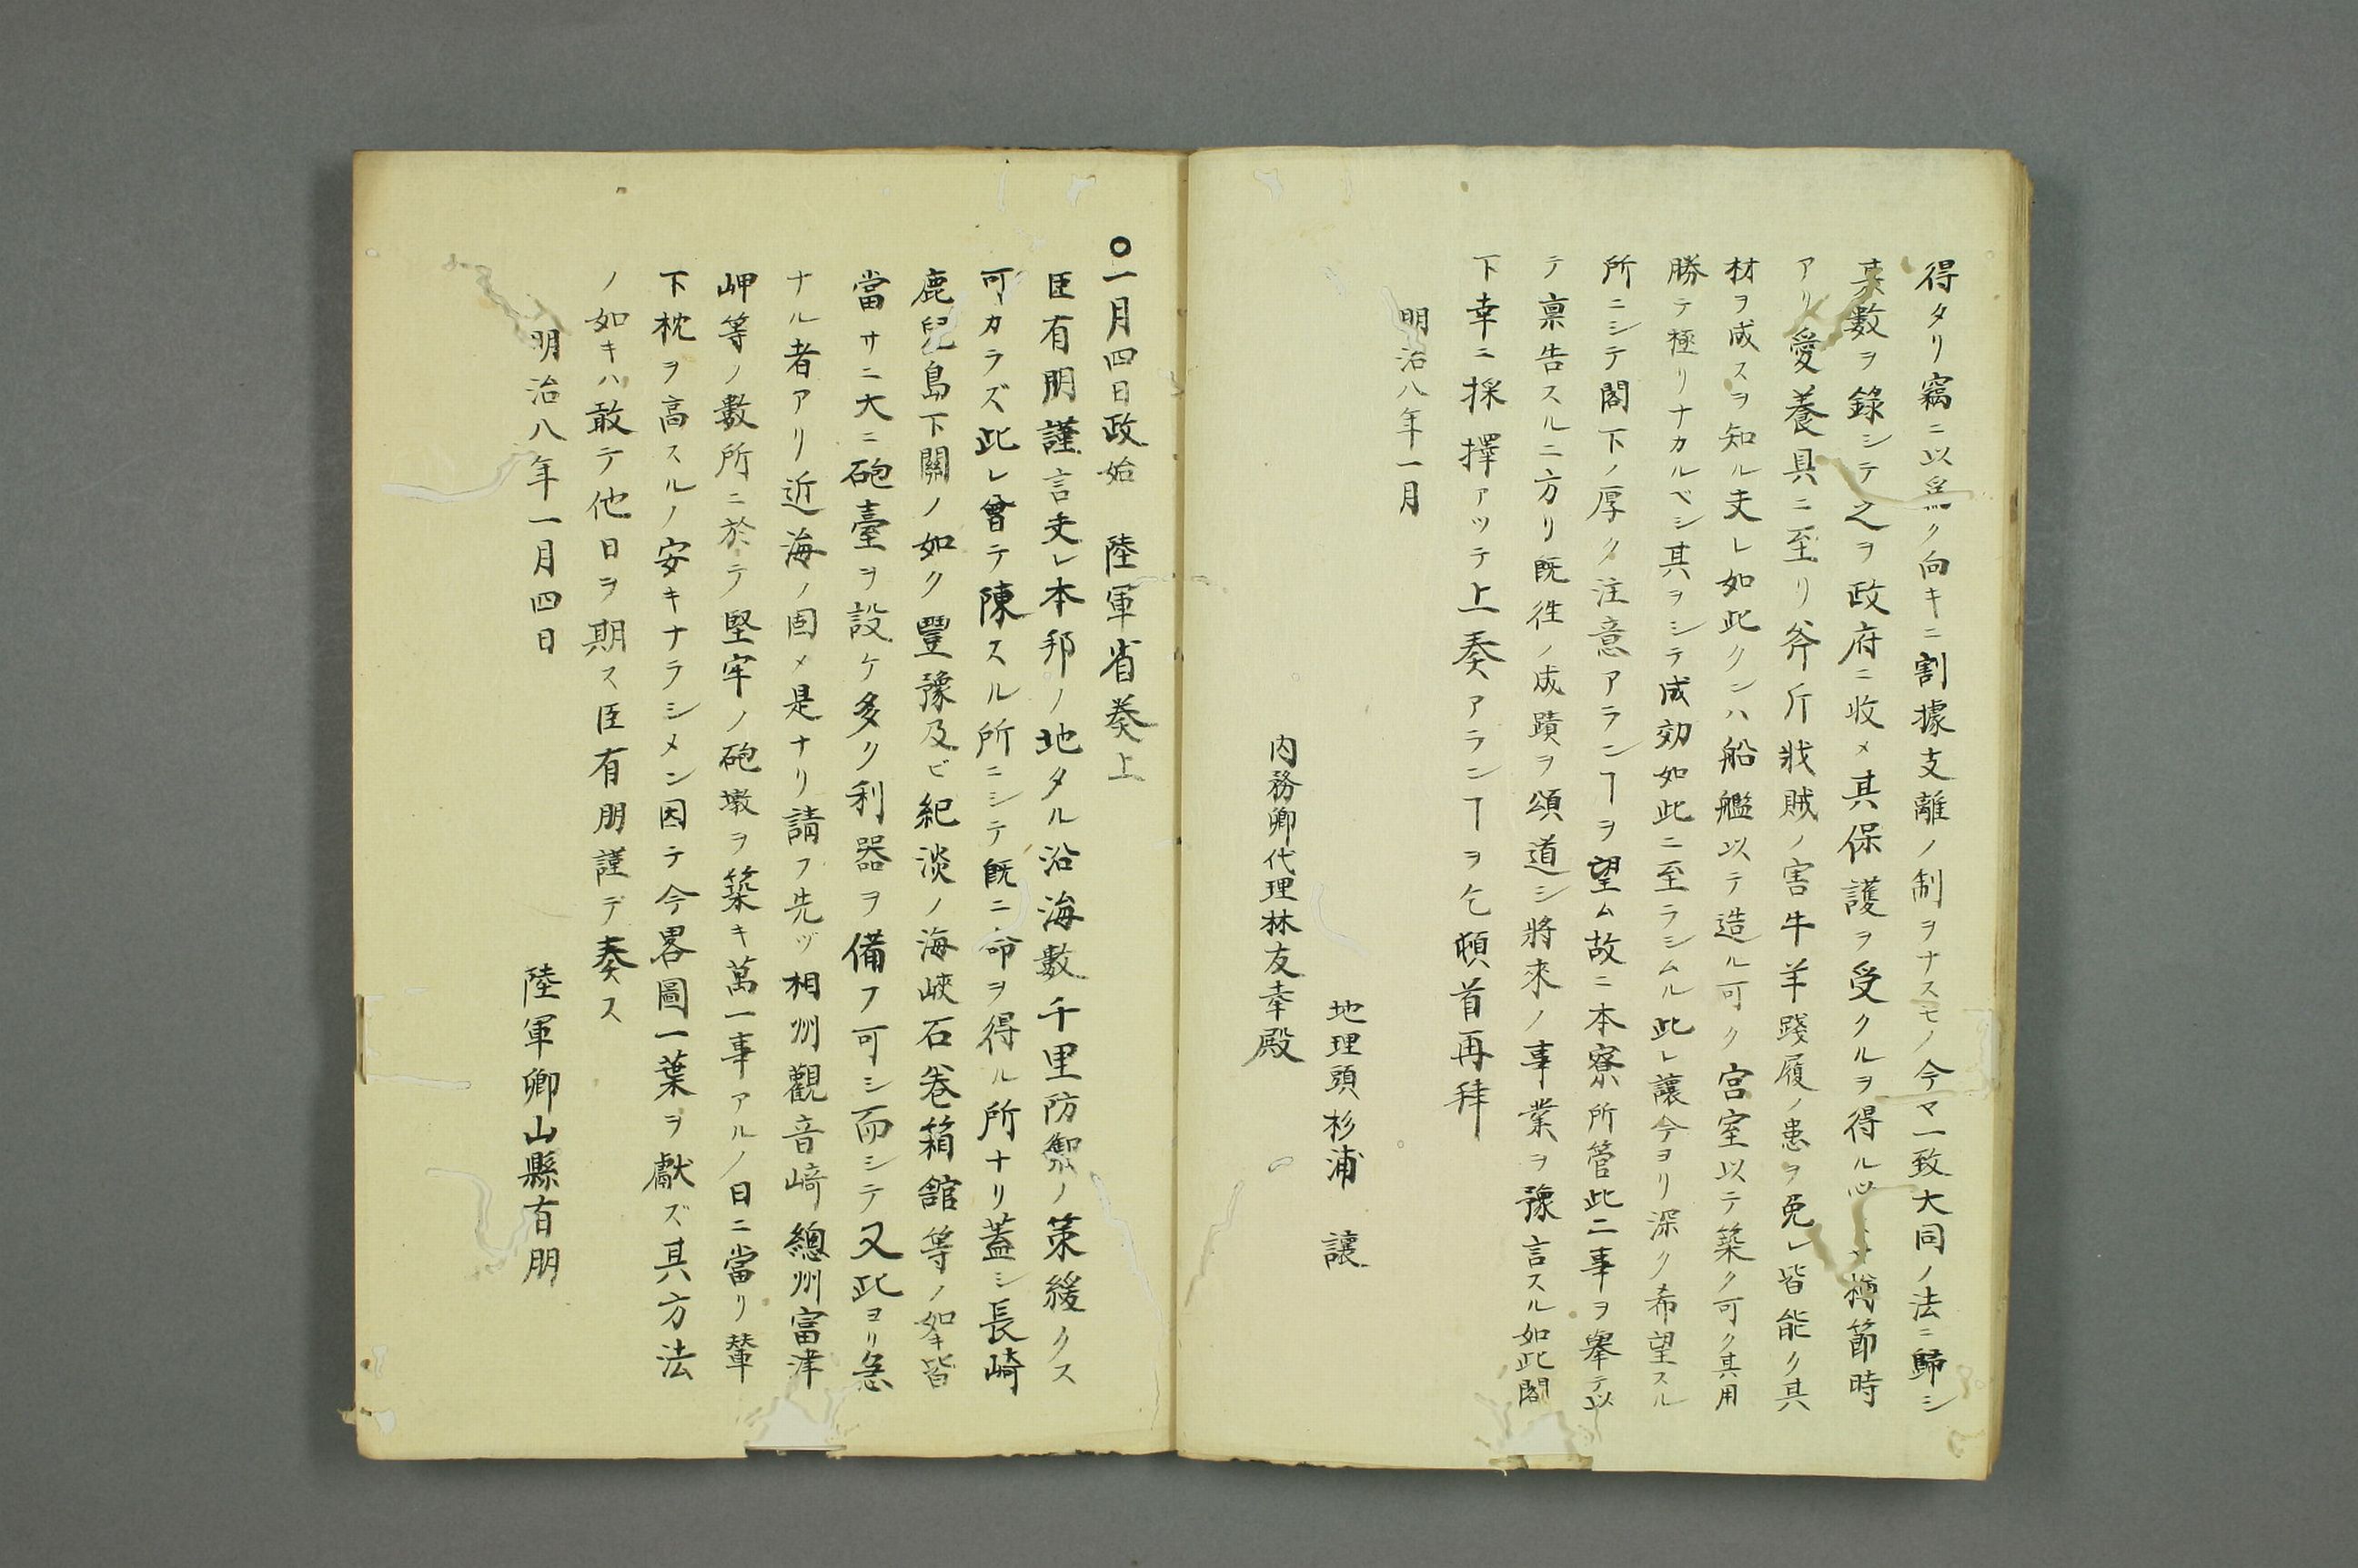 得タリ竊ニ以爲ク向キニ割據支離ノ制ヲナスモノ今マ一致大同ノ法ニ歸シ
其數ヲ錄シテ之ヲ政府ニ收メ其保護ヲ受クルヲ得ル節時
アリ愛養具ニ至リ斧斤戕賊ノ害牛羊踐履ノ患ヲ免レ皆能ク其
材ヲ成スヲ知ル夫レ如此クンハ船艦以テ造ル可ク宮室以テ築ク可ク其用
勝テ極リナカルベシ其ヲシテ成効如此ニ至ラシムル此レ讓今ヨリ深ク希望スル
所ニシテ閣下ノ厚ク注意アランヿヲ望ム故ニ本寮所管此二事ヲ舉テ以
テ禀告スルニ方リ既徃ノ成蹟ヲ頌道シ將來ノ事業ヲ豫言スル如此閣
下幸ニ採擇アツテ上奏アランヿヲ乞頓首再拜
明治八年一月
地理頭杉浦 讓
内務卿代理林友幸殿
〇一月四日政始 陸軍省奏上
臣有朋謹言夫レ本邦ノ地タル沿海數千里防禦ノ策緩クス
可カラズ此レ曾テ陳スル所ニシテ既ニ命ヲ得ル所ナリ蓋シ長崎
鹿兒島下關ノ如ク豐豫及ビ紀淡ノ海峽石巻箱舘等ノ如キ皆
當サニ大ニ砲臺ヲ設ケ多ク利器ヲ備フ可シ而シテ又此ヨリ急
ナル者アリ近海ノ固メ是ナリ請フ先ヅ相州觀音﨑總州富津
岬等ノ數所ニ於テ堅牢ノ砲墩ヲ築キ萬一事アルノ日ニ當リ輦
下枕ヲ高スルノ安キナラシメン因テ今畧圖一葉ヲ獻ズ其方法
ノ如キハ敢テ他日ヲ期ス臣有朋謹デ奏ス
明治八年一月四日
陸軍卿山縣有朋